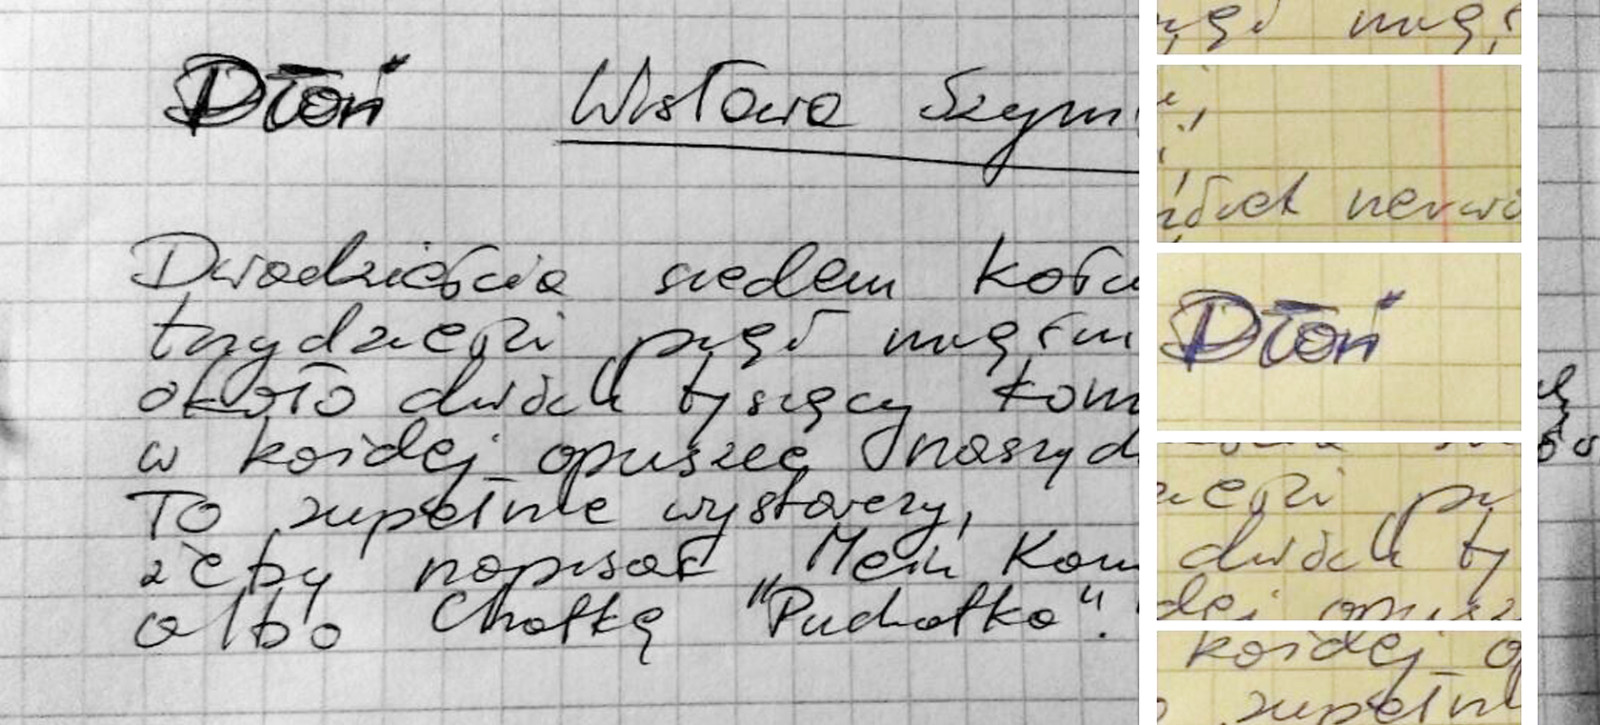 Dłoń Wisława Szym
Dwadzieścia siedem kości
trzydzieści pięć mięśni
około dwóch tysięcy kom
w każdej opuszce naszych
To zupełnie wystarczy,
żeby napisać "Mein Kam
albo Chatkę "Puchatka".
ięć mięś
dwóch
Dłoń
dzieści pi
dwóch ty
żdej opusz
każdej o
zupełnie